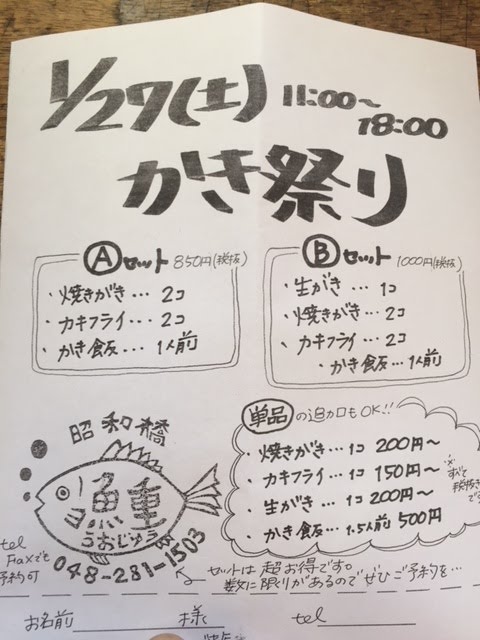 1/27(土) 11:00～18:00
かき祭り
Aセット 850円(税抜)
・焼きがき… 2コ
・カキフライ… 2コ
・かき食反… 1人前
Bセット 1000円(税抜)
・生がき… 1コ
・焼きがき… 2コ
・カキフライ… 2コ
・かき飯… 1人前
単品の追加もOK!!
・焼きがき… 1コ 200円～
・カキフライ… 1コ 150円～
・生がき… 1コ 200円～
・かき飯… 1.5人前 500円
※すべて税抜きです
昭和橋
魚重
うおじゅう
048-281-1503
tel
FaXでも
予約可
セットは超お得です。
数に限りがあるのでぜひご予約を…
お名前 様 tel